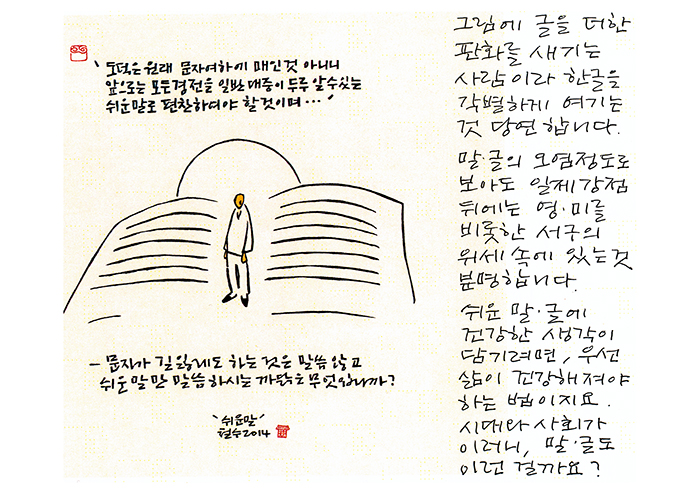 "도덕은 원래 문자여하에 매인것 아니니
앞으로는 모든경전을 일반대중이 두루 알수있는
쉬운말로 편찬하여야 할것이며..."
- 문자가 길잃레도 하는것은 말씀 않고
쉬운말만 말씀하시는 까닭은 무엇입니까?
"쉬운말"
철수2014
그림에 글을 더한
판화를 새기는
사람이라 한글을
각별하게 여기는
것 당연합니다.
말·글의 오염정도로
보아도 일제강점
뒤에는 영·미를
비롯한 서구의
위세 속에 있는것
분명합니다.
쉬운 말·글에
건강한 생각이
담기려면, 우선
삶이 건강해져야
하는 법이지요.
시대와 사회가
이러니, 말·글도
이런 걸까요?